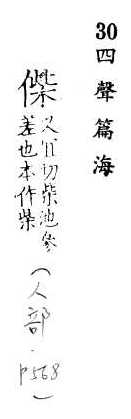 30四聲篇海
偨
叉宜切柴池參
差也本作柴
（人部．p568）